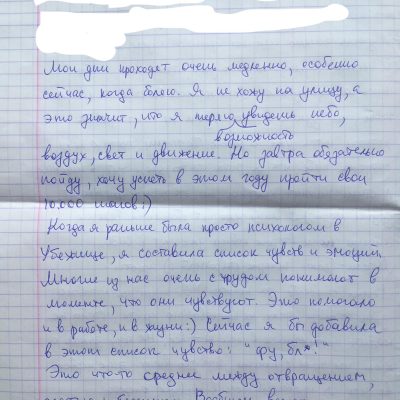 Мои дни проходят очень медленно, особенно
сейчас, когда болею. Я не хожу на улицу, а
это значит, что я теряю увидеть небо,
возможность
воздух, свет и движение. Но завтра обязательно
пойду, хочу успеть в этом году пройти свои
10.000 шагов!)
Когда я раньше была просто психологом в
Убежище, я составила список чувств и эмоций.
Многие из нас очень с трудом понимают в
моменте, что они чувствуют. Это помогало
и в работе, и в жизни:) Сейчас я бы добавила
в этот список чувство: "фу, бл*!"
Это что-то среднее между отвращением,